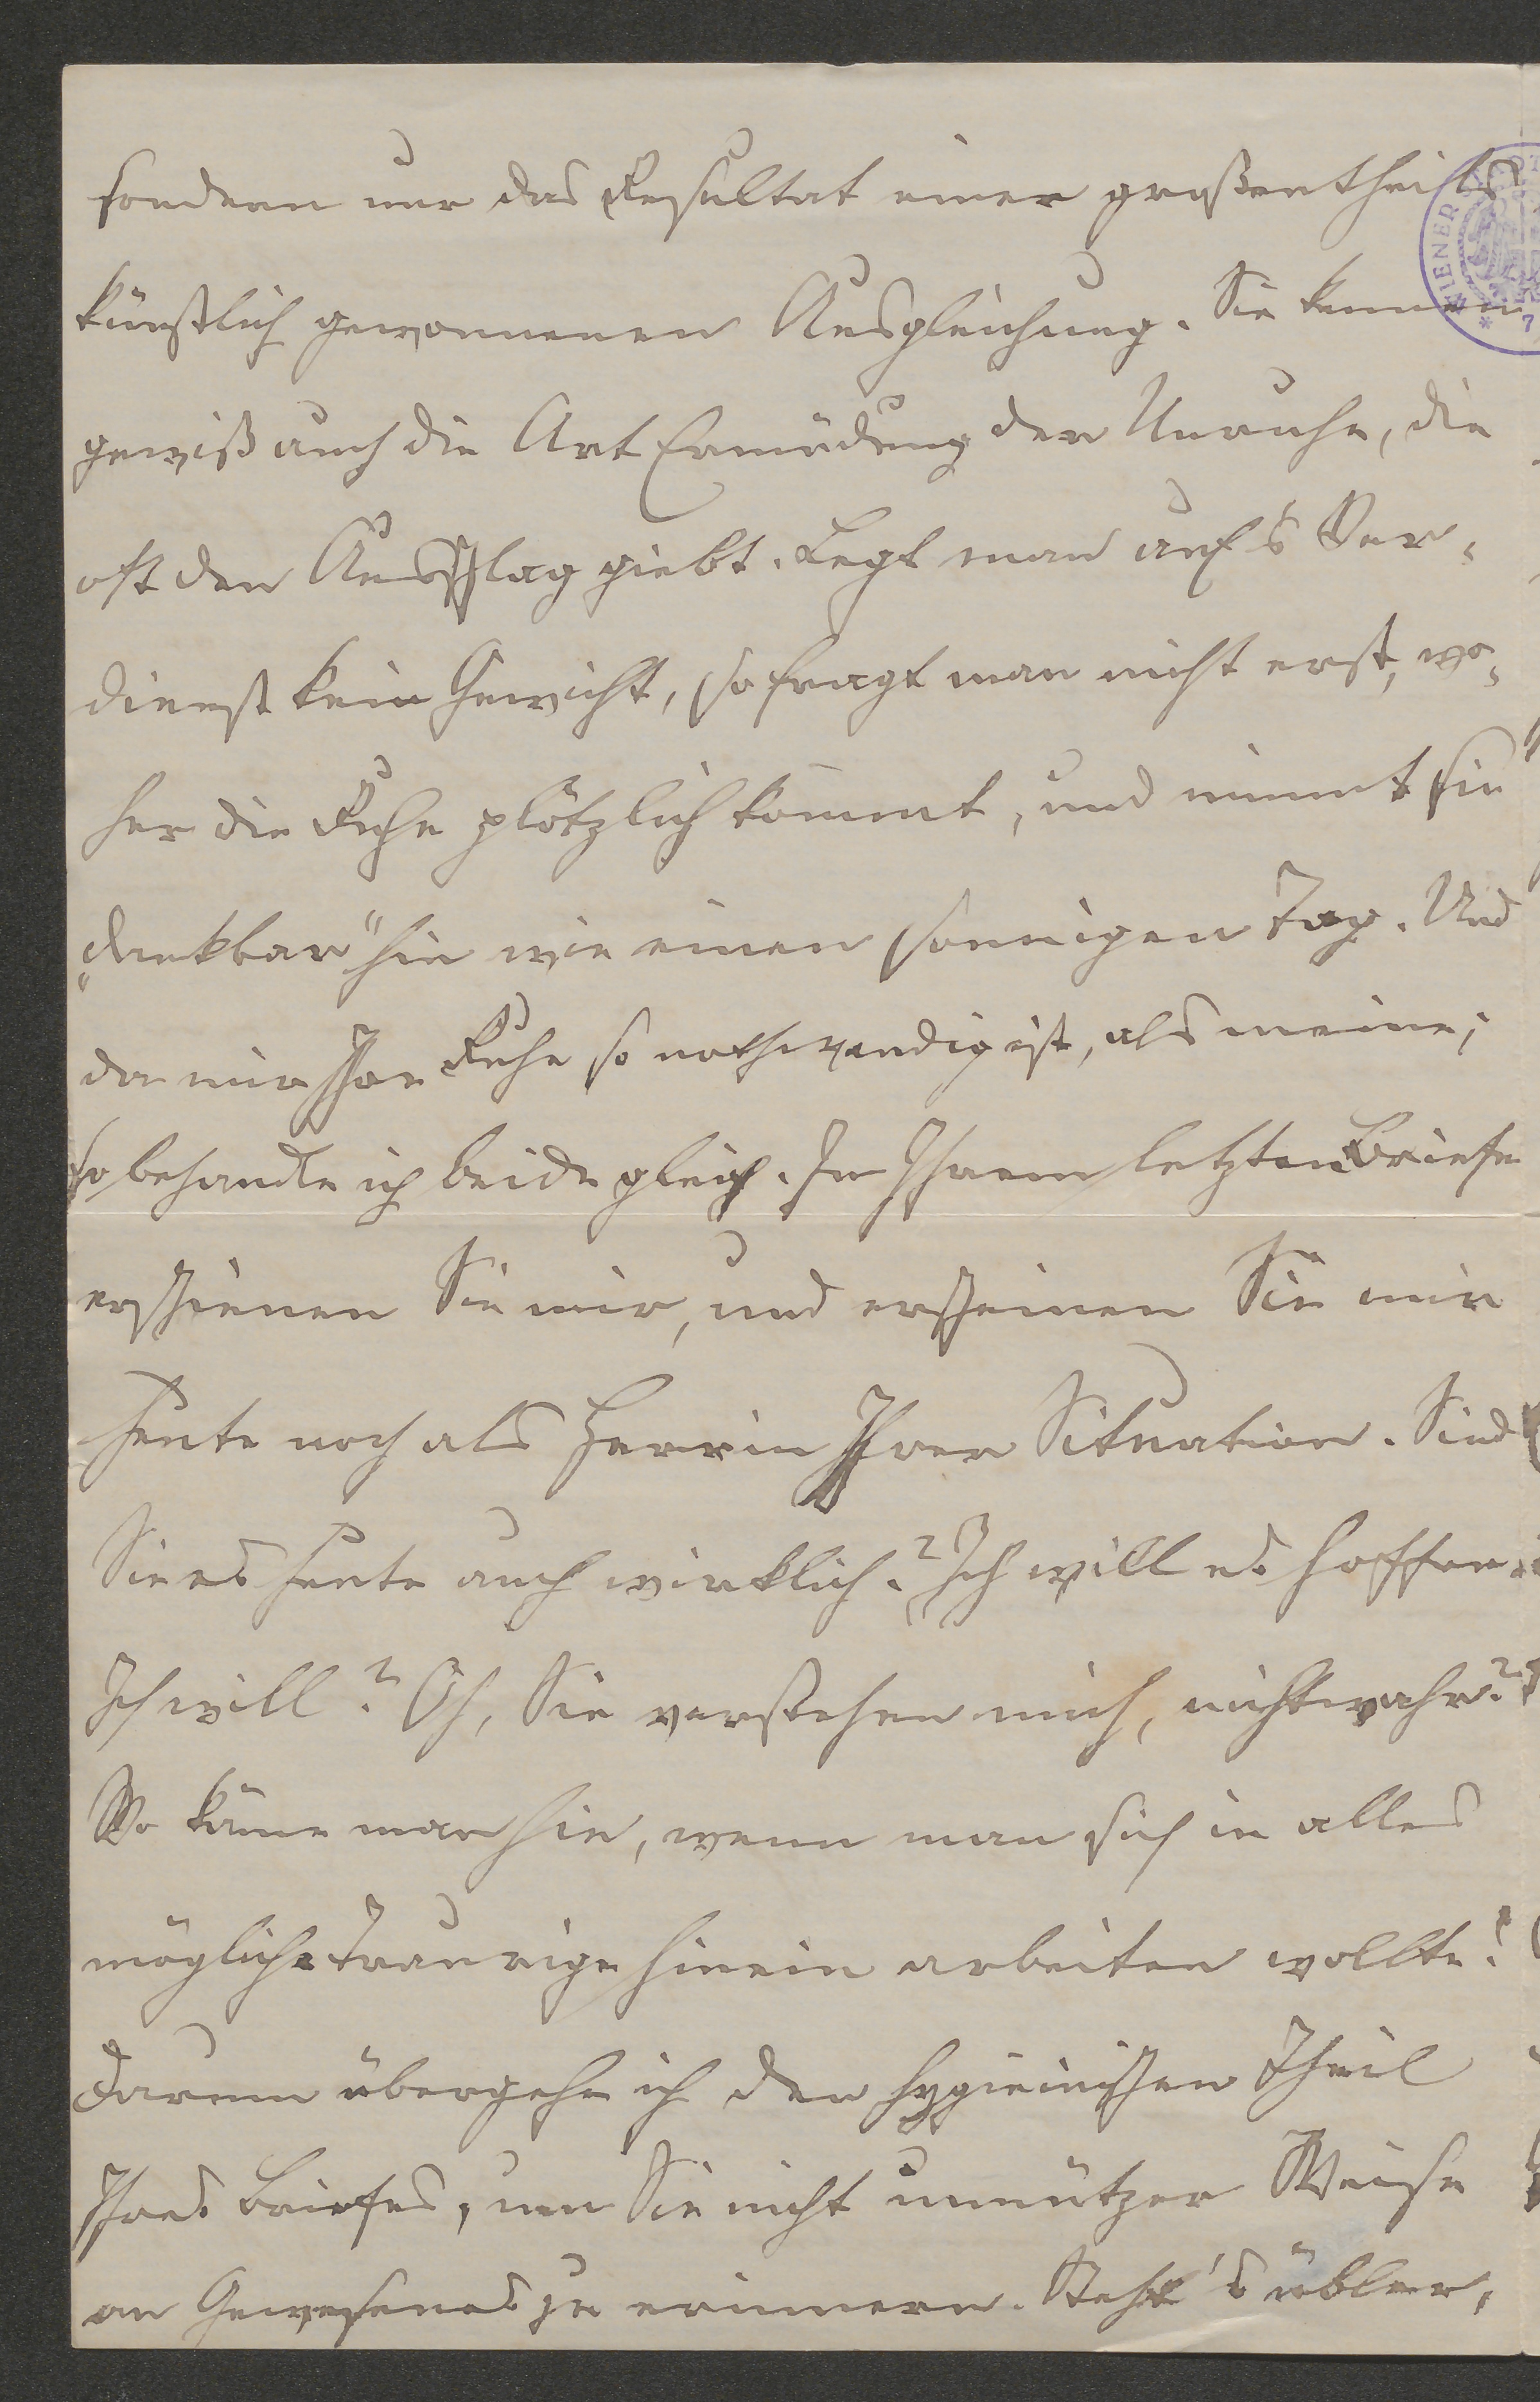 sondern nur das Resultat einer großentheils
künstlich gewonnenen Ausgleichung. Sie kennen
gewiß auch die Art Ermüdung der Unruhe, die
oft den Ausschlag giebt. Legt man auf's Ver-
dienst kein Gewicht, so fragt man nicht erst, wo-
her die Ruhe plötzlich kommt, und nimmt sie
„dankbar“ hin wie einen sonnigen Tag. Und
da mir Ihre Ruhe so nothwendig ist, als meine,
so behandle ich beide gleich. In Ihrem letzten Briefe
erschienen Sie mir, und erscheinen Sie mir
heute noch als Herrin Ihrer Situation. Sind
Sie es heute auch wirklich? Ich will es hoffen.
Ich will? Oh, Sie verstehen mich, nichtwahr?
Wo käme man hin, wenn man sich in alles
mögliche Traurige hinein arbeiten wollte!
Darum übergehe ich den hygieinischen Theil
Ihres Briefes, um Sie nicht unnützer Weise
an Gewesenes zu erinnern. Steht's übler,
WIENER STADT
* 7